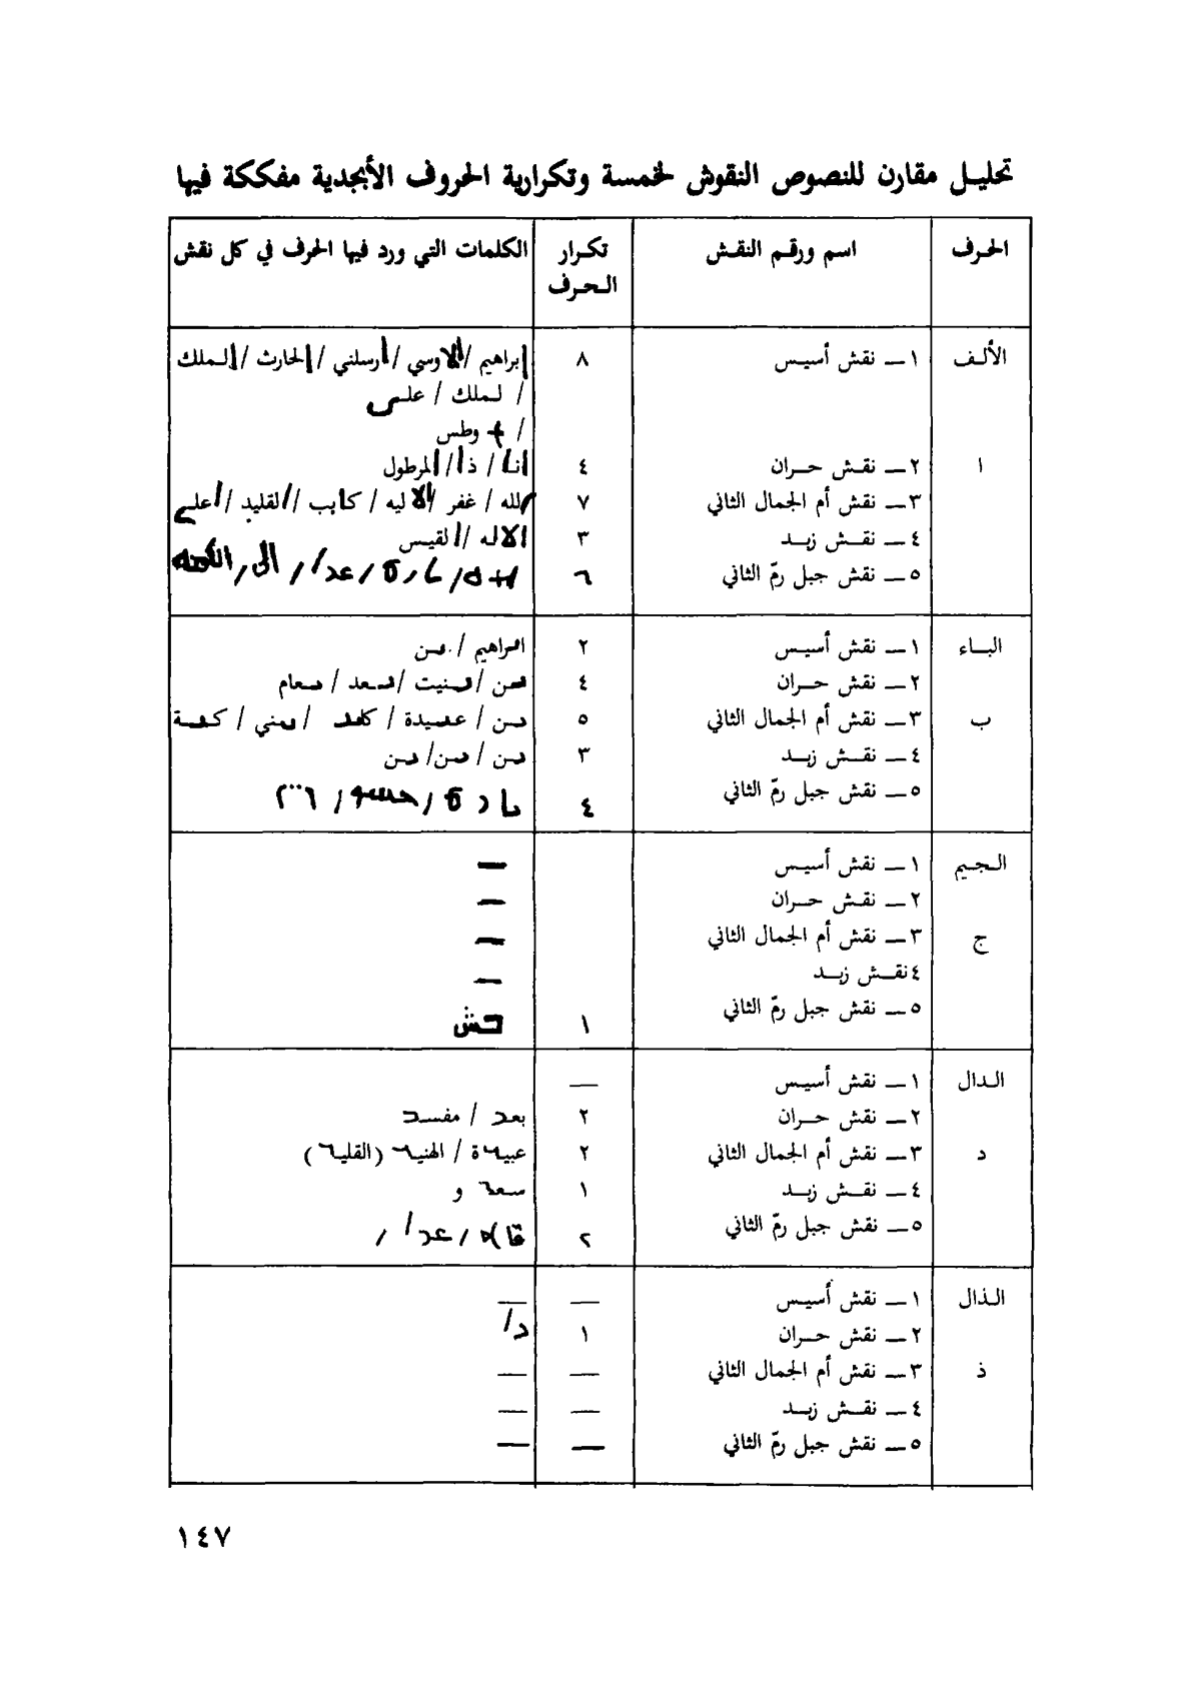 تحليل مقارن للنصوص النقوش لخمسة وتكرارية الحروف الأبجدية مفككة فيها
الحرف اسم ورقم النقش تكرار الحرف الكلمات التي ورد فيها الحرف في كل نقش
الألف ١ — نقش أسيس ٨ إبراهيم / الاوسي / أرسلني / الحارث / الملك
/ لملك / على
/ وطس
ا ٢ — نقش حران ٤ انا / ذا / المرطول
٣ — نقش أم الجمال الثاني ٧ الله / غفر / الاليه / كاتب / القليد / اعلى
٤ — نقش زبد ٣ الاله / القيس
٥ — نقش جبل رمّ الثاني ٦
الباء ١ — نقش أسيس ٢ ابراهيم / بن
٢ — نقش حران ٤ بن / بنيت / بعد / بعام
ب ٣ — نقش أم الجمال الثاني ٥ بن / عبيدة / كاتب / بني / كتبه
٤ — نقش زبد ٣ بن / بن / بن
٥ — نقش جبل رمّ الثاني ٤
الجيم ١ — نقش أسيس —
٢ — نقش حران —
ج ٣ — نقش أم الجمال الثاني —
٤ نقش زبد —
٥ — نقش جبل رمّ الثاني ١
الدال ١ — نقش أسيس —
٢ — نقش حران ٢ بعد / مفسد
د ٣ — نقش أم الجمال الثاني ٢ عبيدة / الهنيد (القليد)
٤ — نقش زبد ١ سعد و
٥ — نقش جبل رمّ الثاني ٢
الذال ١ — نقش أسيس — —
٢ — نقش حران ١ د/
ذ ٣ — نقش أم الجمال الثاني — —
٤ — نقش زبد — —
٥ — نقش جبل رمّ الثاني — —
١٤٧